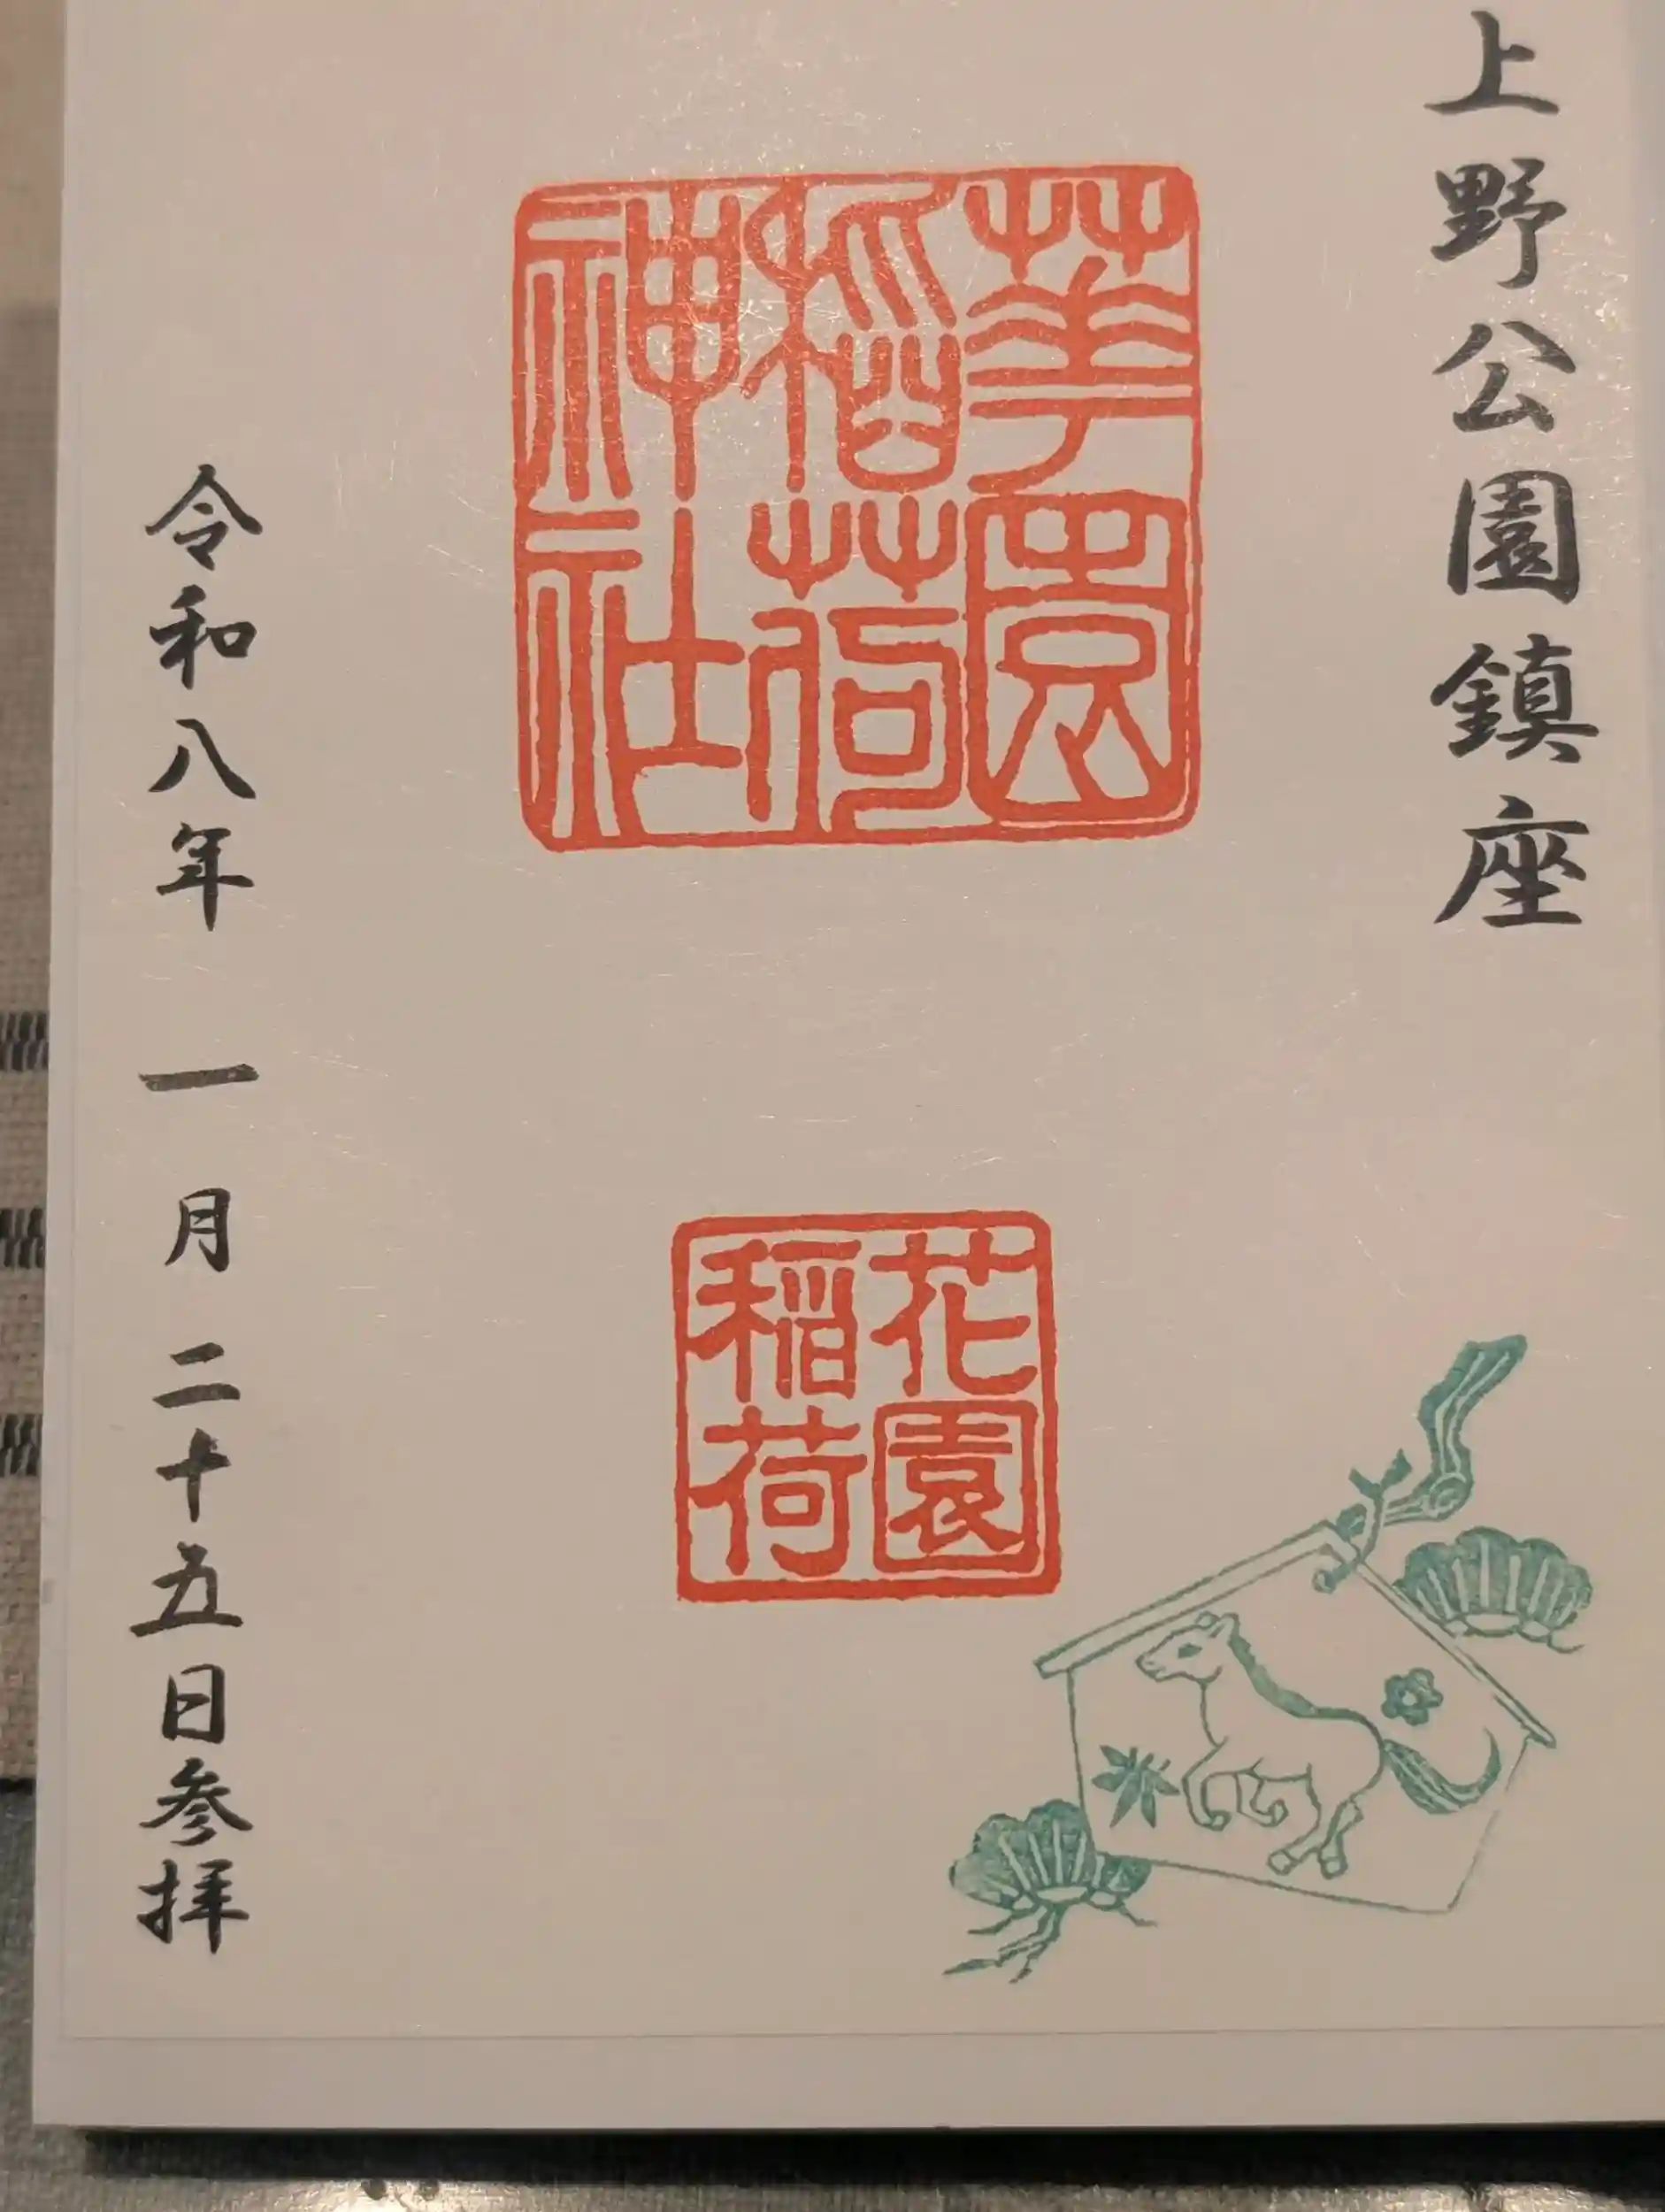 上野公園鎮座
華園
稲荷
神社
花園
稲荷
令和八年 一月二十五日参拝